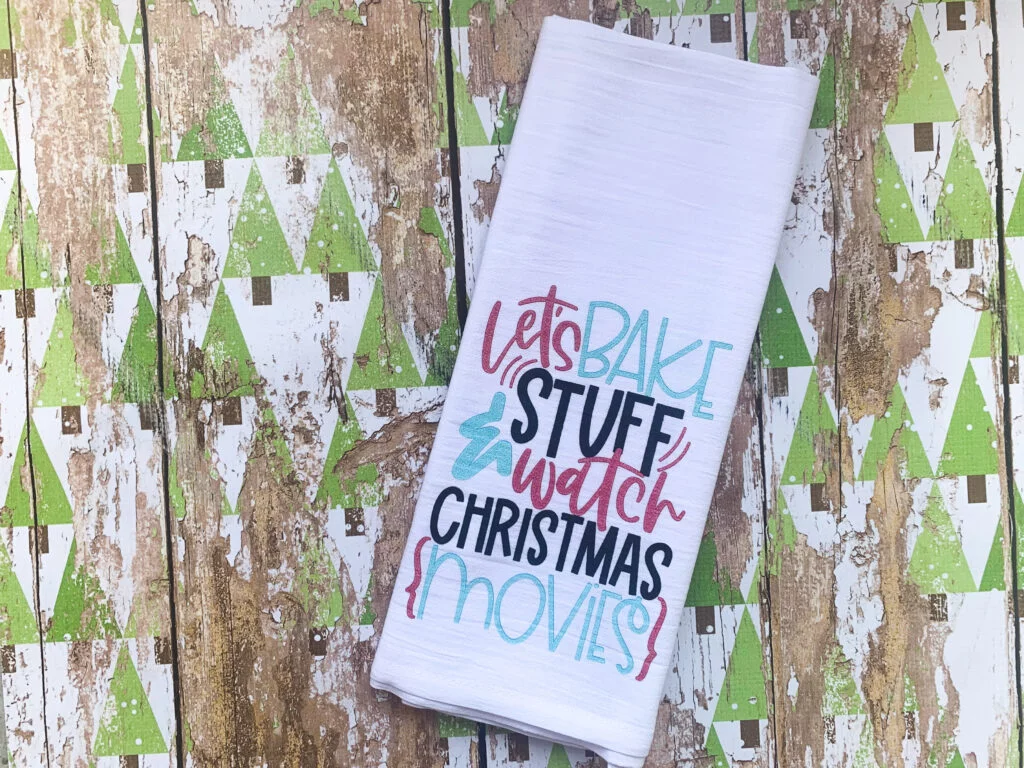 Let's BAKE
STUFF
& watch
CHRISTMAS
{MOVIES}